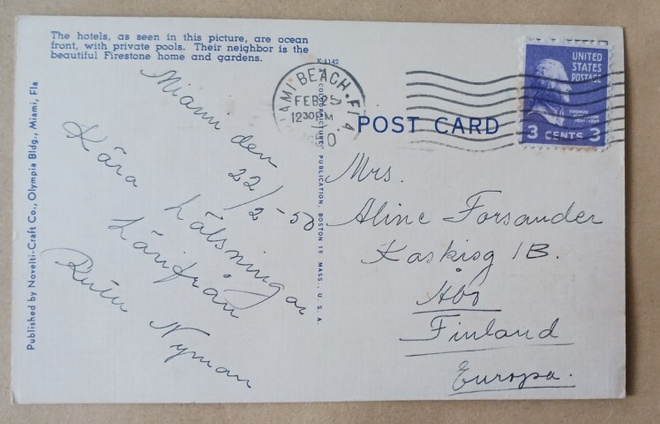 The hotels, as seen in this picture, are ocean
front, with private pools. Their neighbor is the
beautiful Firestone home and gardens.
Miami den
22/2-50
Kära hälsningar
härifrån
Ruth Nyman
Published by Novelti-Craft Co., Olympia Bldg., Miami, Fla
PUBLICATION, BOSTON 15 MASS., U. S. A.
MIAMI BEACH. FLA
FEB 25
12 30 PM
POST CARD
UNITED
STATES
POSTAGE
3 CENTS 3
Mrs.
Aline Forsander
Kaskisg 1B.
Åbo
Finland
Europa.